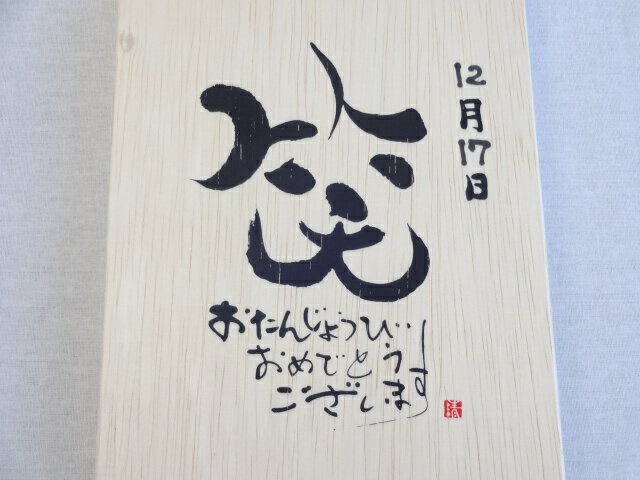 12月17日
笑
おたんじょうび
おめでとう
ございます